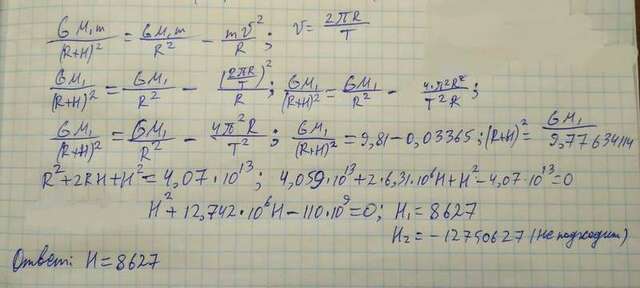 GM₁m/(R+H)² = GM₁m/R² - mV²/R; V = 2πR/T
GM₁/(R+H)² = GM₁/R² - (2πR/T)²/R; GM₁/(R+H)² = GM₁/R² - 4π²R²/T²R;
GM₁/(R+H)² = GM₁/R² - 4π²R/T²; GM₁/(R+H)² = 9,81-0,03365; (R+H)² = GM₁/9,77634114
R²+2RH+H² = 4,07·10¹³; 4,059·10¹³+2·6,31·10⁶H+H²-4,07·10¹³=0
H²+12,742·10⁶H-110·10⁹=0; H₁=8627
H₂=-12750627 (не подходит)
Ответ: H=8627